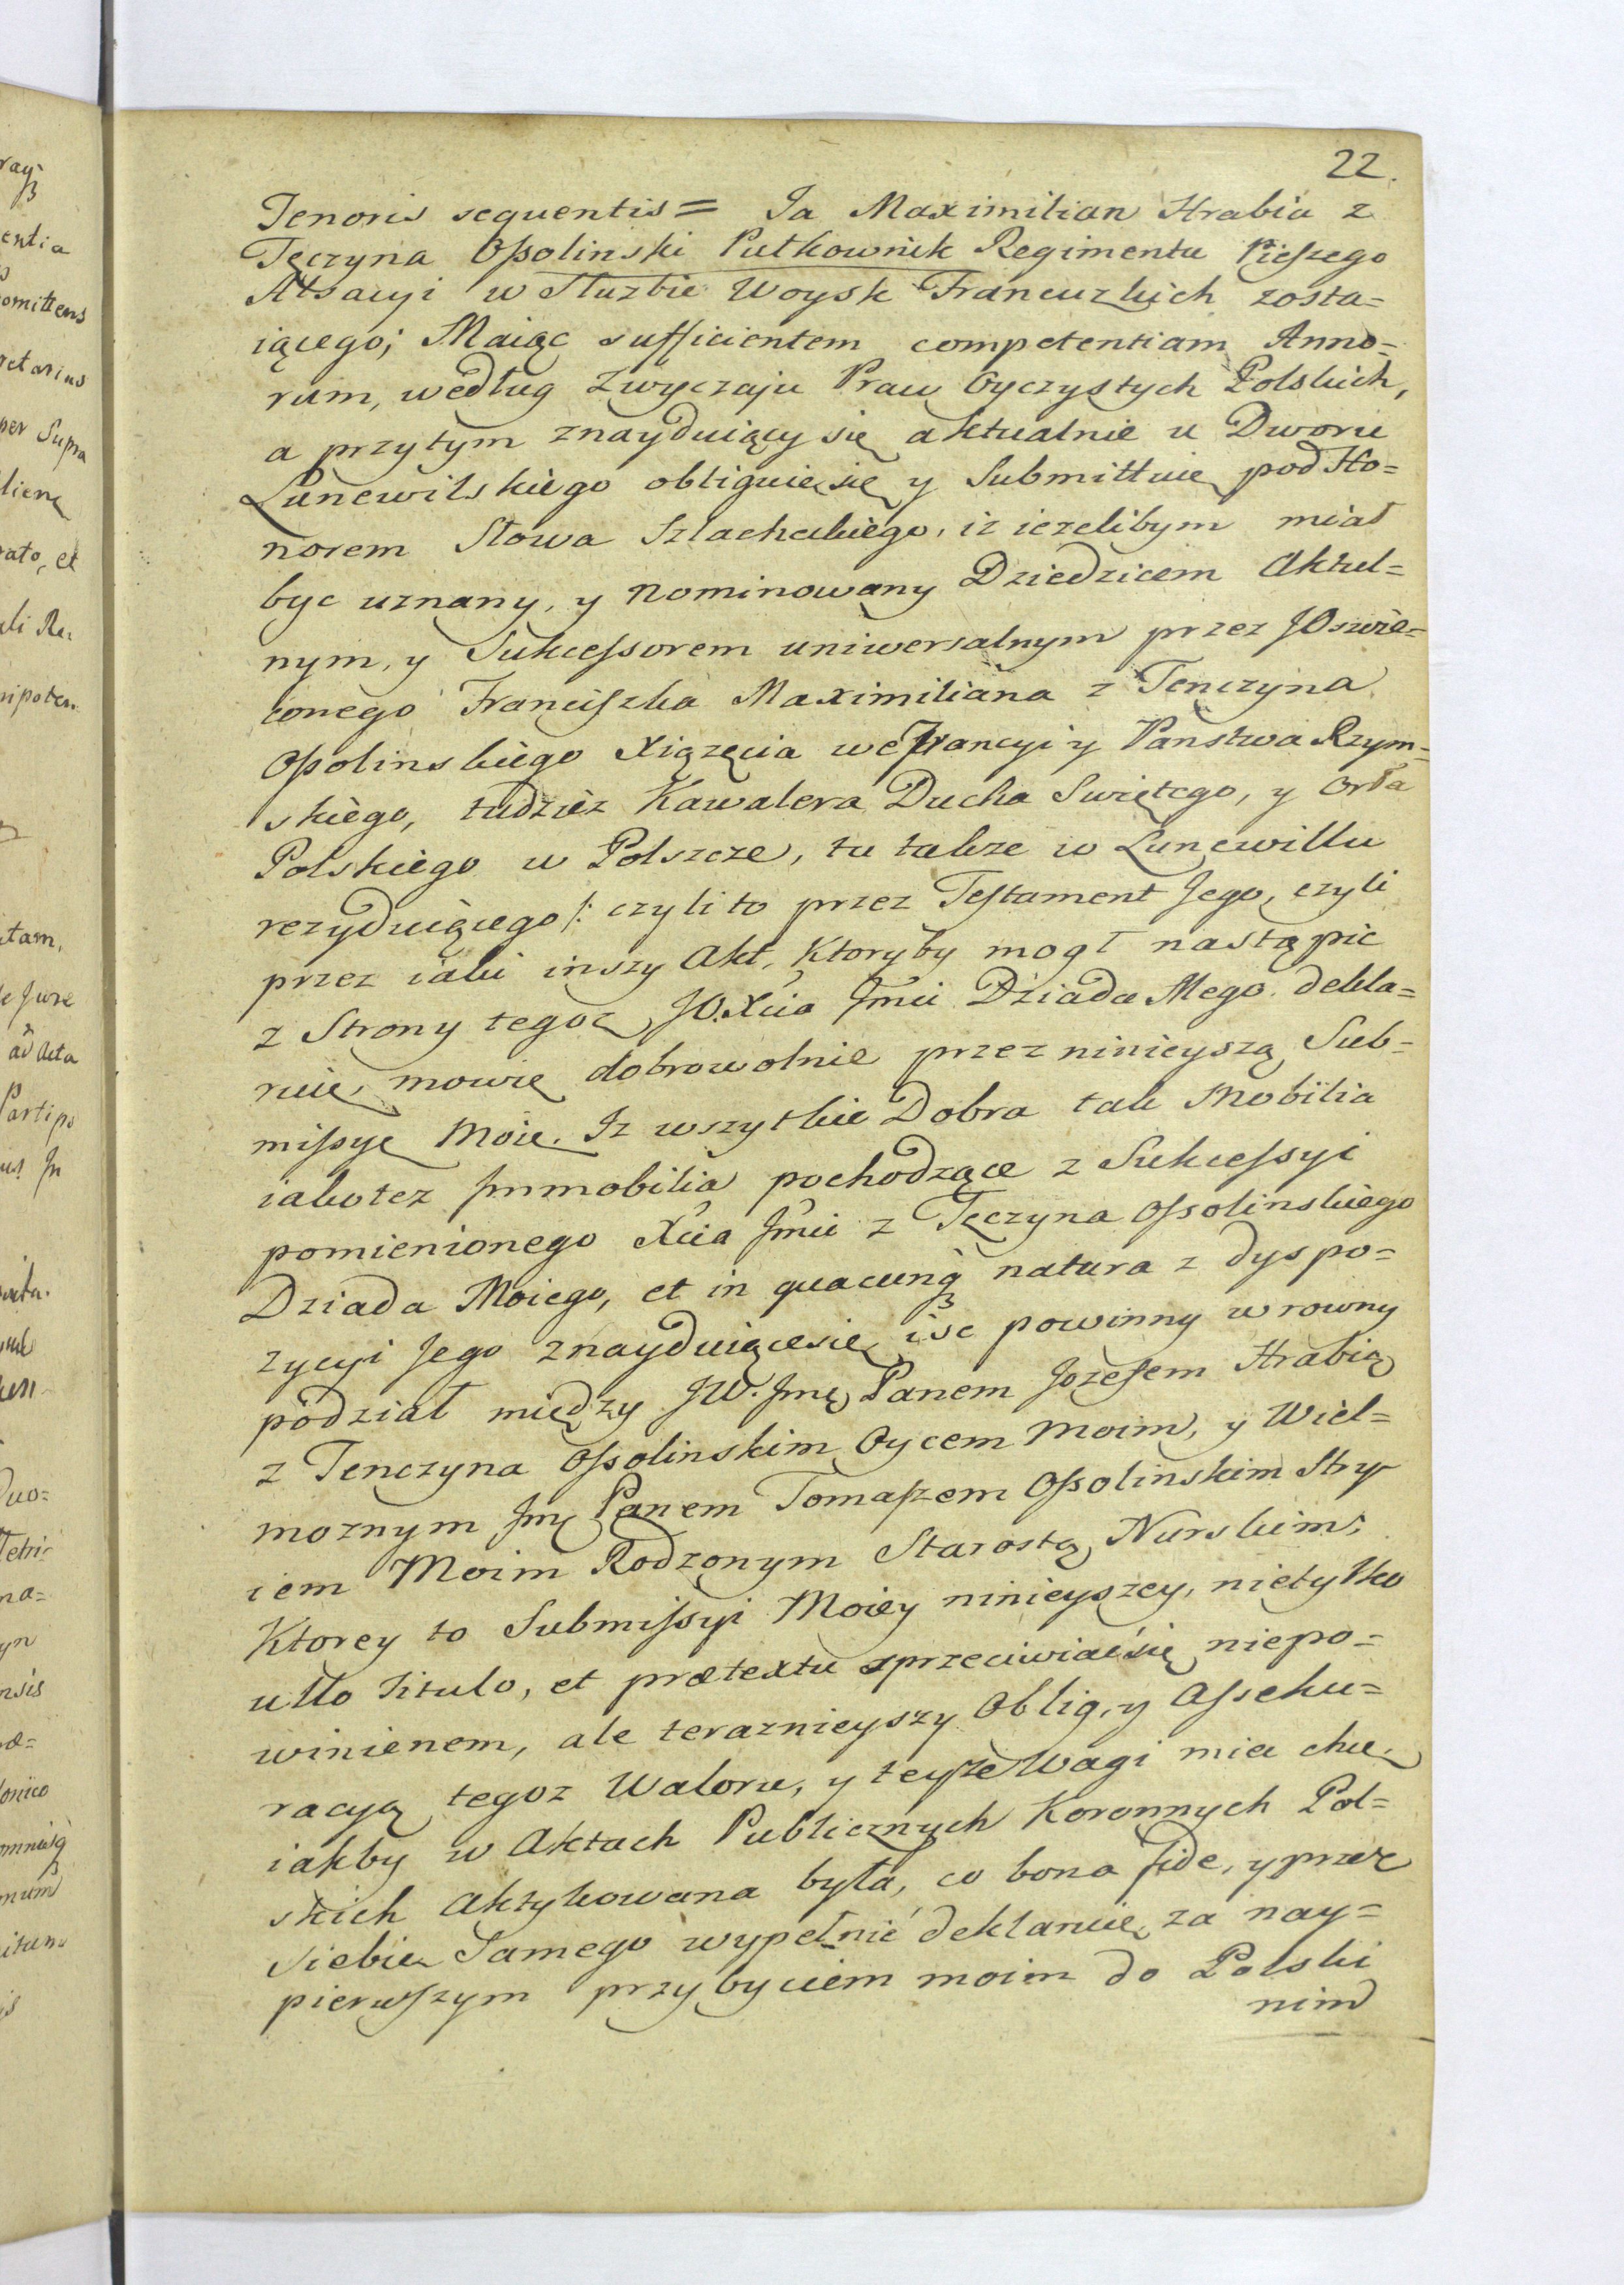 22.
Tenoris sequentis = Ja Maximilian Hrabia z
Tęczyna Ossolinski Pułkownik Regimentu Pieszego
Alsacyi w Służbie Woysk Francuzkich zosta=
iącego; Maiąc sufficientem competentiam Anno=
rum, według Zwyczaju Praw Oyczystych Polskich,
a przytym znayduiący się aktualnie u Dworu
Lunewilskiego obliguię się y Submittuię pod Ho=
norem Słowa Szlacheckiego, iz iezelibym miał
byc uznany, y nominowany Dziedzicem Aktual=
nym, y Sukcessorem uniwersalnym przez JOswie=
conego Franciszka Maximiliana z Tenczyna
Ossolinskiego Xiązęcia we Francyi y Panstwa Rzym=
skiego, tudziez Kawalera Ducha Swiętego, y Orła
Polskiego w Polszcze, tu takze w Lunewillu
rezyduiącego /: czyli to przez Testament Jego, czyli
przez iaki inszy Akt, Ktoryby mogł nastąpic
z Strony tegoz JO. Xcia Jmci Dziada Mego. dekla=
ruię, mowię dobrowolnie przez ninieyszą Sub=
missyę Moię. Iz wszytkie Dobra tak Mobilia
iakotez Immobilia pochodzące z Sukcessyi
pomienionego Xcia Jmci z Tęczyna Ossolinskiego
Dziada Moiego, et in quacunq natura z dyspo=
zycyi Jego znayduiącesię, iśc powinny w rowny
podział między JW. Jmę Panem Jozefem Hrabią
z Tenczyna Ossolinskim Oycem Moim, y Wiel=
moznym Jmę Panem Tomaszem Ossolinskim Stry
iem Moim Rodzonym Starostą Nurskim;
Ktorey to Submissyi Moiey ninieyszey, nietylko
ullo titulo, et prætextu sprzeciwiaćsię niepo=
winienem, ale teraznieyszy Oblig, y Asseku=
racyą tegoz Waloru, y teyze Wagi miec chcę,
iakby w Aktach Publicznych Koronnych Pol=
skich Aktykowana była, co bona fide, y przez
Siebie Samego wypełnić deklaruię, za nay=
pierwszym przybyciem moim do Polski
nim